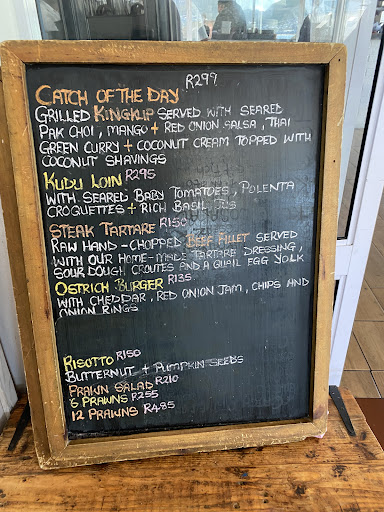 R299
CATCH OF THE DAY
GRILLED KINGKLIP SERVED WITH SEARED
PAK CHOI, MANGO + RED ONION SALSA, THAI
GREEN CURRY + COCONUT CREAM TOPPED WITH
COCONUT SHAVINGS
KUDU LOIN R295
WITH SEARED BABY TOMATOES, POLENTA
CROQUETTES + RICH BASIL JUS
STEAK TARTARE R150
RAW HAND-CHOPPED BEEF FILLET SERVED
WITH OUR HOME-MADE TARTARE DRESSING,
SOUR DOUGH CROUTES AND A QUAIL EGG YOLK
OSTRICH BURGER R135
WITH CHEDDAR, RED ONION JAM, CHIPS AND
ONION RINGS
RISOTTO R150
BUTTERNUT + PUMPKIN SEEDS
PRAWN SALAD R210
6 PRAWNS R255
12 PRAWNS R485